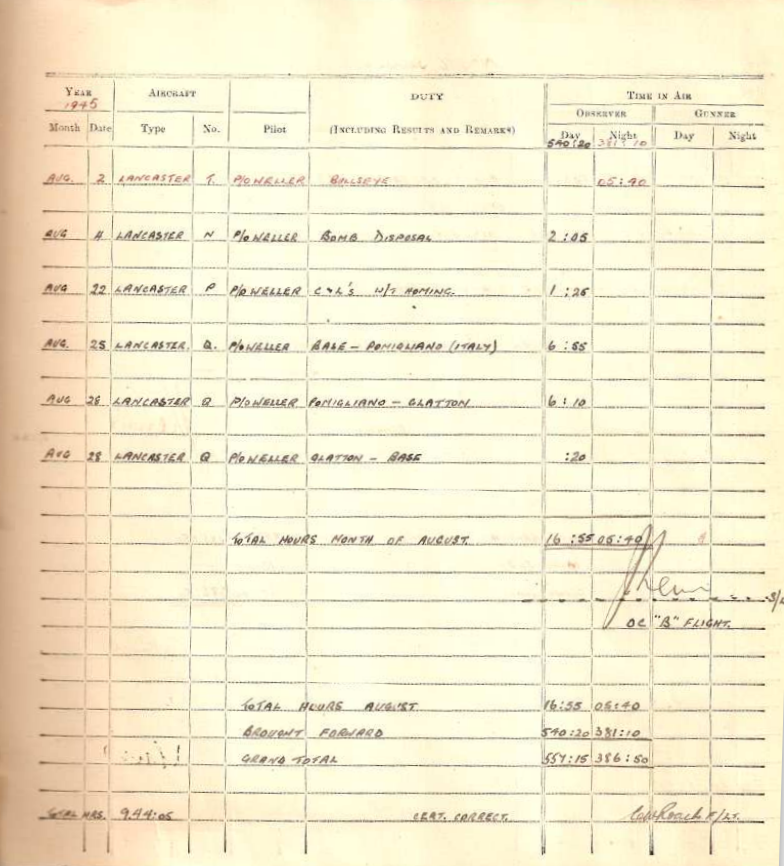 YEAR 1945 AIRCRAFT DUTY TIME IN AIR
OBSERVER GUNNER
Month Date Type No. Pilot (INCLUDING RESULTS AND REMARKS) Day Night Day Night
540:20 381:10
AUG. 2 LANCASTER T. P/O WELLER BULLSEYE 05:40
AUG 4 LANCASTER N P/O WELLER BOMB DISPOSAL 2:05
AUG 22 LANCASTER P P/O WELLER C & L'S W/T HOMING. 1:25
AUG. 25 LANCASTER. Q. P/O WELLER BASE – POMIGLIANO (ITALY) 6:55
AUG 28 LANCASTER Q P/O WELLER POMIGLIANO – GLATTON 6:10
AUG 28 LANCASTER Q P/O WELLER GLATTON – BASE :20
TOTAL HOURS MONTH OF AUGUST. 16:55 05:40
S/L
OC "B" FLIGHT.
TOTAL HOURS AUGUST 16:55 05:40
BROUGHT FORWARD 540:20 381:10
GRAND TOTAL 557:15 386:50
TOTAL HRS. 944:05 CERT. CORRECT. F/LT.